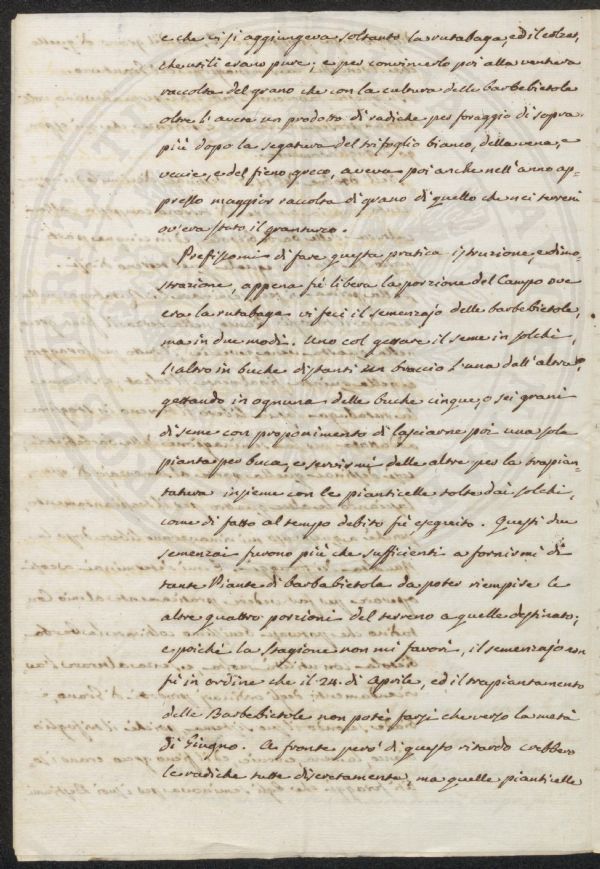 e che vi si aggiungeva soltanto la rutabaga, ed il colzat,
che utili erano pure; e per convincerlo poi alla ventura
raccolta del grano che con la cultura delle barbebietole
oltre l'avere un prodotto di radiche per foraggio di sopra
più dopo la segatura del trifoglio bianco, della vena, e
vecie, e del fieno greco, aveva poi anche nell'anno ap-
presso maggior raccolta di grano di quello che nei terreni
ov'era stato il granturco.
Prefissomi di fare questa pratica istruzione, e dimo-
strazione, appena fù libera la porzione del Campo ove
era la rutabaga vi feci il semenzajo delle barbebietole,
ma in due modi. Uno col gettare il seme in solchi,
l'altro in buche distanti un braccio l'una dall'altra,
gettando in ognuna delle buche cinque, o sei grani
di seme con proponimento di lasciarne poi una sola
pianta per buca, e servirmi delle altre per la trapian-
tatura insieme con le pianticelle tolte dai solchi,
come di fatto al tempo debito fù eseguito. Questi due
semenzai furono più che sufficienti a fornirmi di
tante Piante di barbabietola da poter riempire le
altre quattro porzioni del terreno a quelle destinato;
e poichè la stagione non mi favorì, il semenzajo non
fù in ordine che il 24. di Aprile, ed il trapiantamento
delle Barbebietole non potè farsi che verso la metà
di Giugno. A fronte però di questo ritardo crebbero
le radiche tutte discretamente, ma quelle pianticelle